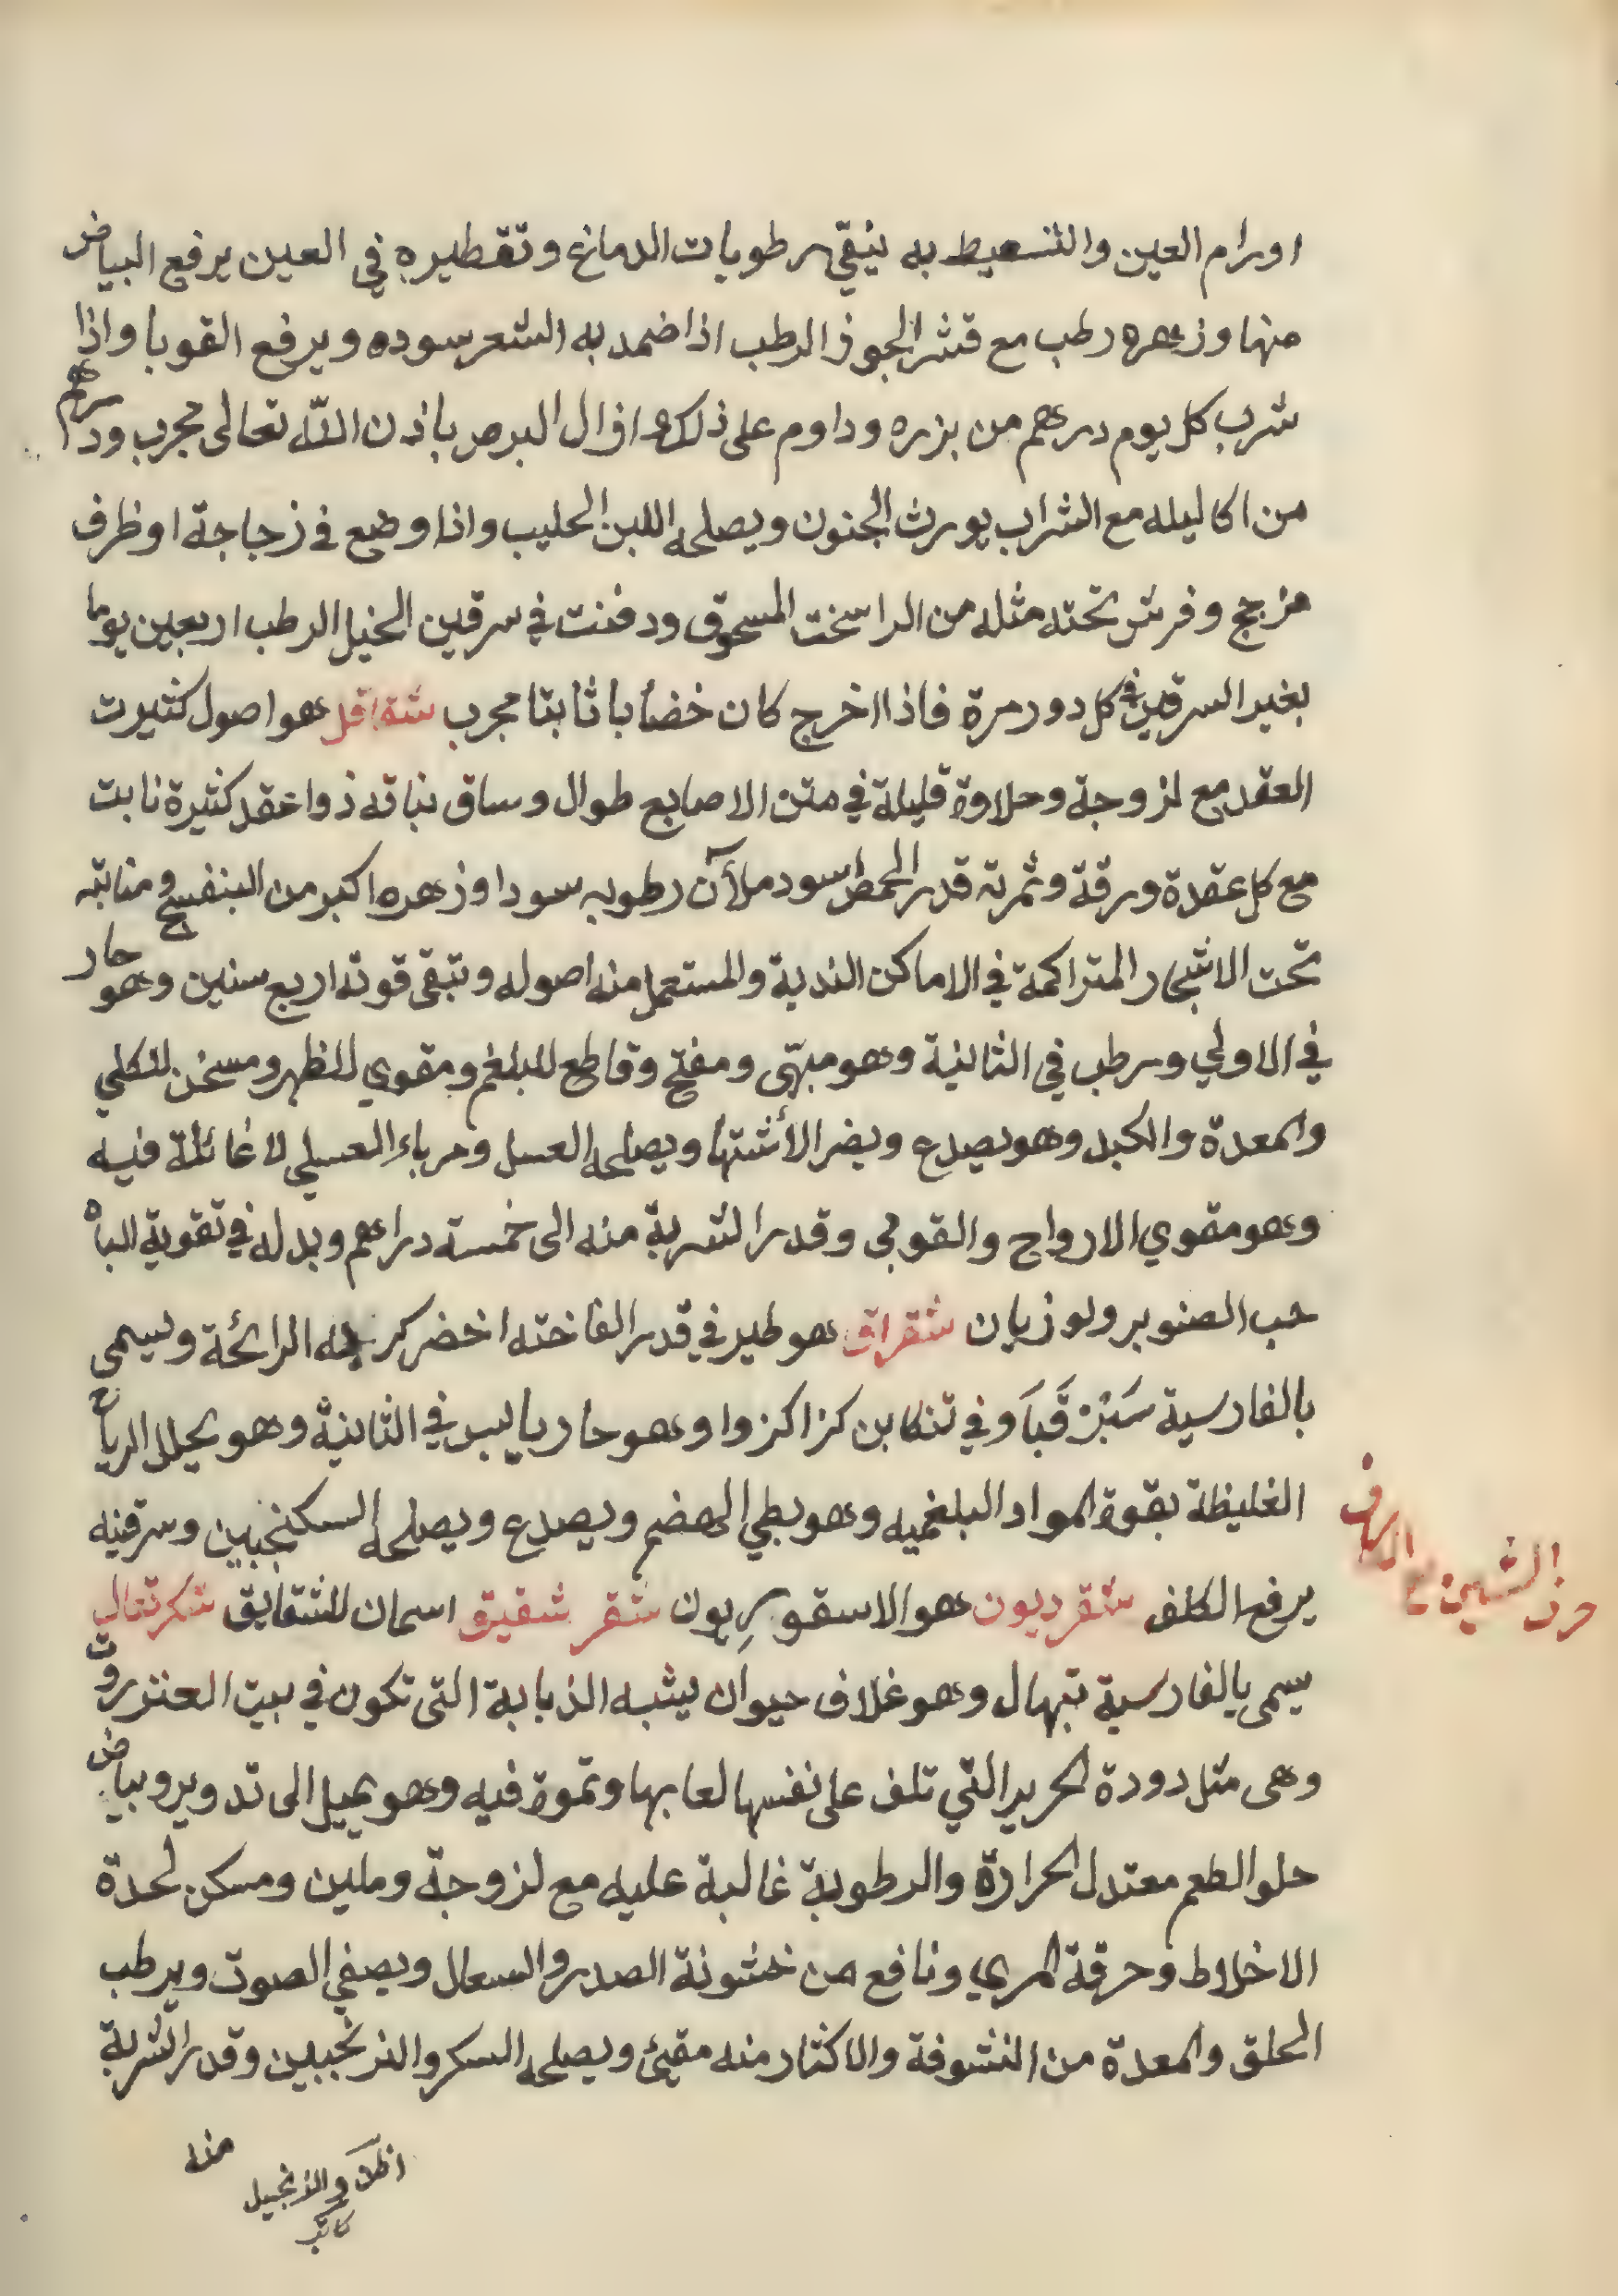 اورام العين والتسعيط به ينقي رطوبات الدماغ وتقطيره في العين يرفع البياض
منها وزهره رطب مع قشر الجوز الرطب اذا ضمد به الشعر سوده ويرفع القوبا واذا
شرب كل يوم درهم من بزره وداوم على ذلك ازال البرص باذن الله تعالى مجرب ودرهم
من اكاليله مع الشراب يورث الجنون ويصلحه اللبن الحليب واذا وضع في زجاجة او ظرف
مزجج وفرش تحته مثله من الراسخت المسحوق ودفنت في سرقين الخيل الرطب اربعين يوما
بغير السرقين في كل دور مرة فاذا اخرج كان خضابا ثابتا مجرب شقاقل هو اصول كثيرت
العقد مع لزوجة وحلاوة قليلة في متن الاصابع طوال وساق نباته ذوا عقد كثيرة نابت
مع كل عقدة ورقة وثمرته قدر الحمص اسود ملآن رطوبه سودا وزهره اكبر من البنفسج ومنابته
تحت الاشجار المتراكمة في الاماكن الندية والمستعمل منه اصوله وتبقى قوته اربع سنين وهو حار
في الاولي ورطب في الثانية وهو مبهّي ومفتح وقاطع للبلغم ومقوي للظهر ومسخن للكلي
والمعدة والكبد وهو يصدع ويضر الأشتها ويصلحه العسل ومرباء العسلي لا غائلة فيه
وهو مقوي الارواح والقوى وقدر الشربة منه الى خمسة دراهم وبدله في تقوية الباه
حب الصنوبر ولوزيان شقراق هو طير في قدر الفاخته اخضر كريه الرائحة ويسمى
بالفارسية سَبْزْ قَبَا وفي تنكابن كزاكزوا وهو حار يابس في الثانية وهو يحلل الرياح
الغليظة بقوة المواد البلغميه وهو بطي الهضم ويصدع ويصلحه السكنجبين وسرقينه
يرفع الكلف شقرديون هو الاسقورديون شقر شقيق اسمان للشقايق شكر تغالي
يسمى بالفارسية تيهال وهو غلاف حيوان يشبه الذبابة التي تكون في بيت العنزروت
وهى مثل دودة الحرير التي تلف على نفسها لعابها وتموة فيه وهو يميل الى تدوير وبياض
حلو الطعم معتدل الحرارة والرطوبة غالبة عليه مع لزوجة وملين ومسكن لحدة
الاخلاط وحرقة المري ونافع من خشونة الصدر والسعال ويصفي الصوت ويرطب
الحلق والمعدة من النشوفة والاكثار منه مقيئ ويصلحه السكر والنرنجبيلين وقدر الشربة
منه
اظن والزنجبيل
كاتبه
حرف الشين مع القاف